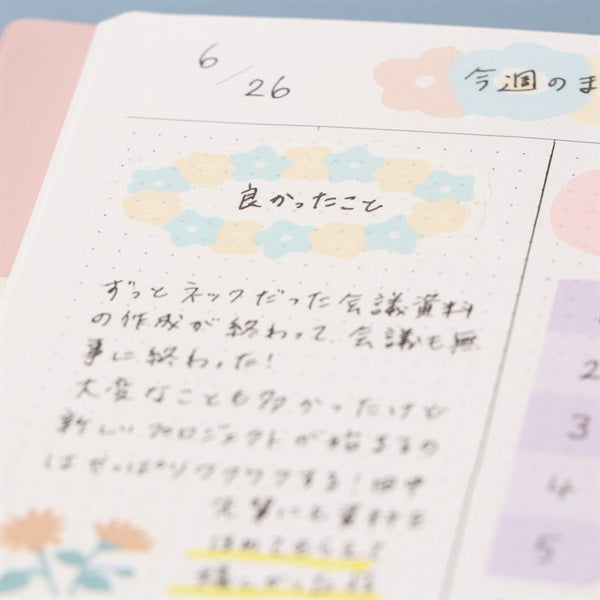 6/26
今週のま
良かったこと
ずっとネックだった会議資料
の作成が終わって、会議も無
事に終わった!
大変なことも多かったけど
新しいプロジェクトが始まるの
はやっぱりワクワクする!田中
先輩にも資料を
ほめてもらえて
嬉しかった
2
3
4
5